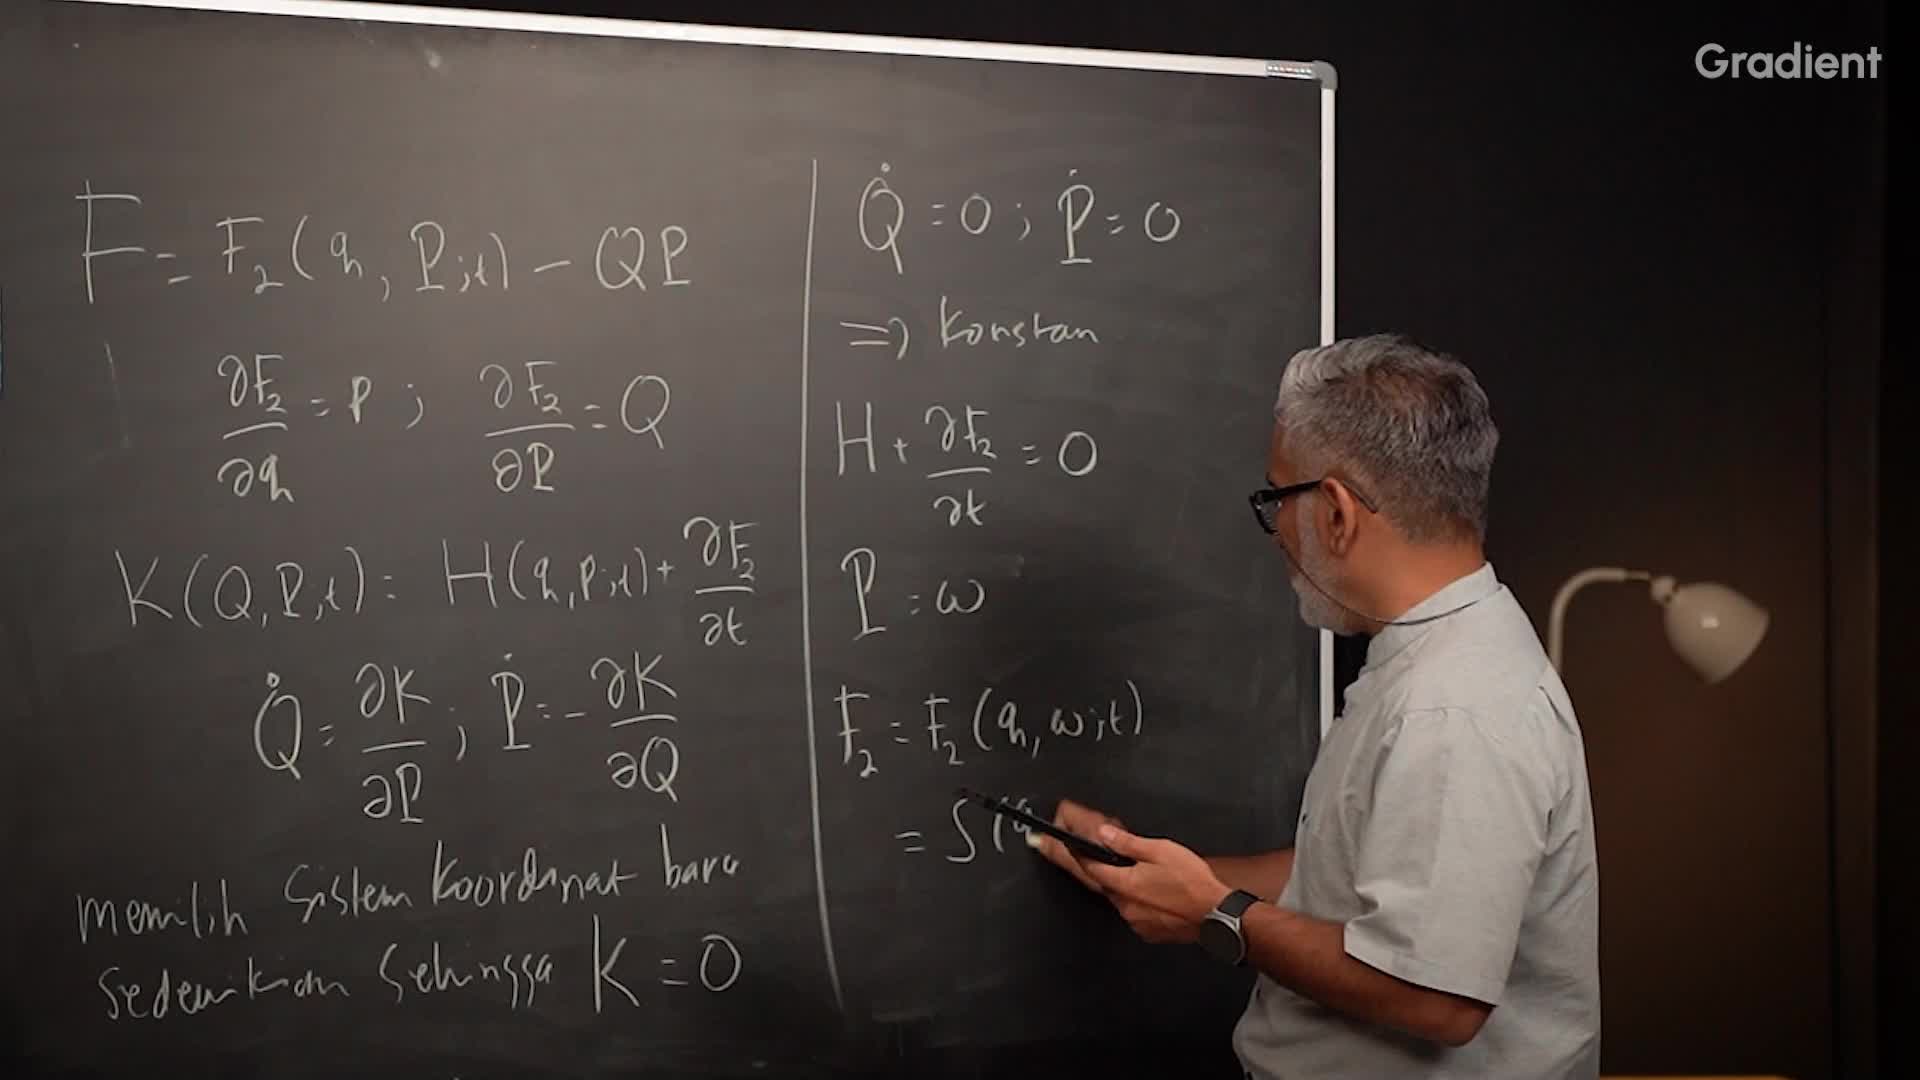 Gradient
F = F₂(q, P;t) − QP
∂F₂/∂q = p ; ∂F₂/∂P = Q
K(Q,P;t) = H(q,p;t) + ∂F₂/∂t
Q̇ = ∂K/∂P ; Ṗ = − ∂K/∂Q
memilih sistem koordinat baru
sedemikian sehingga K = 0
Q̇ = 0 ; Ṗ = 0
⇒ konstan
H + ∂F₂/∂t = 0
P = ω
F₂ = F₂(q, ω;t)
= S(q